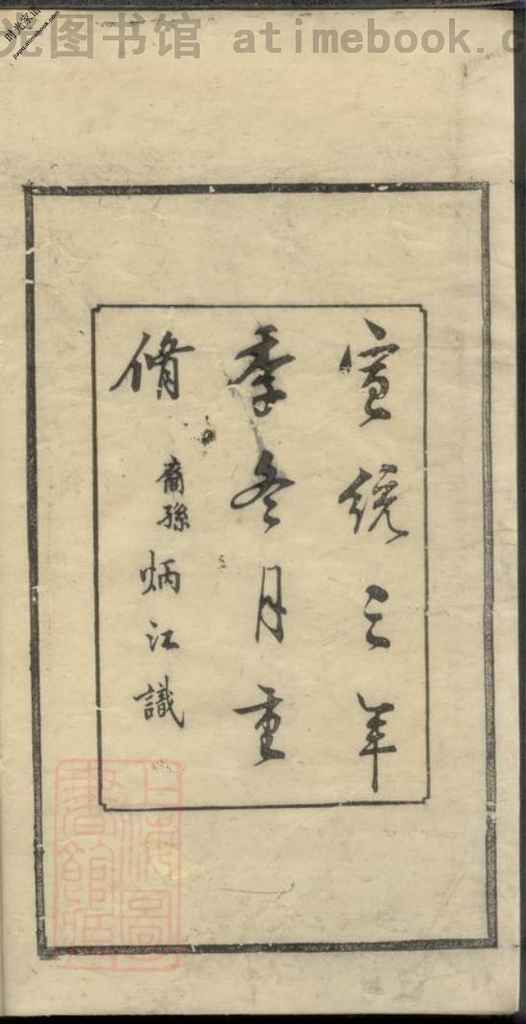 光图书馆 atimebook.c
宣統三年
季冬月重
脩 裔孫 炳江識
上海圖
書館藏